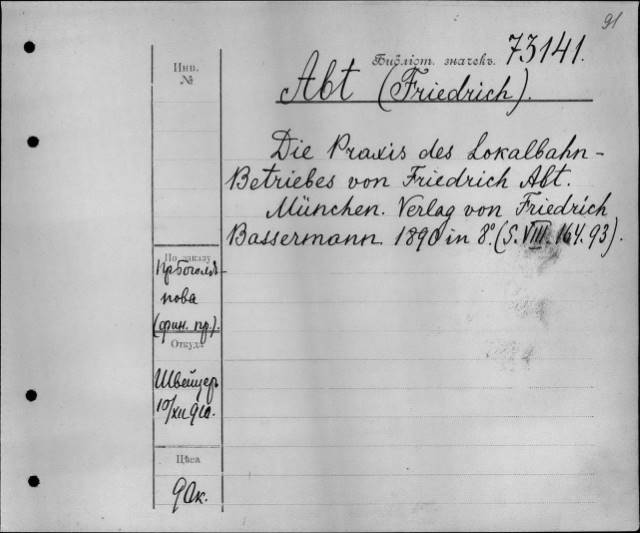 91
Инв.
№
Библіот. значекъ. 73141.
Abt (Friedrich).
Die Praxis des Lokalbahn-
Betriebes von Friedrich Abt.
München. Verlag von Friedrich
Bassermann. 1890 in 8º. (S. VIII. 164. 93).
По заказу
пр. Боголѣ-
пова
(фин. пр.).
Откуда
Швейцеръ
10/XII 910.
Цѣна
90к.